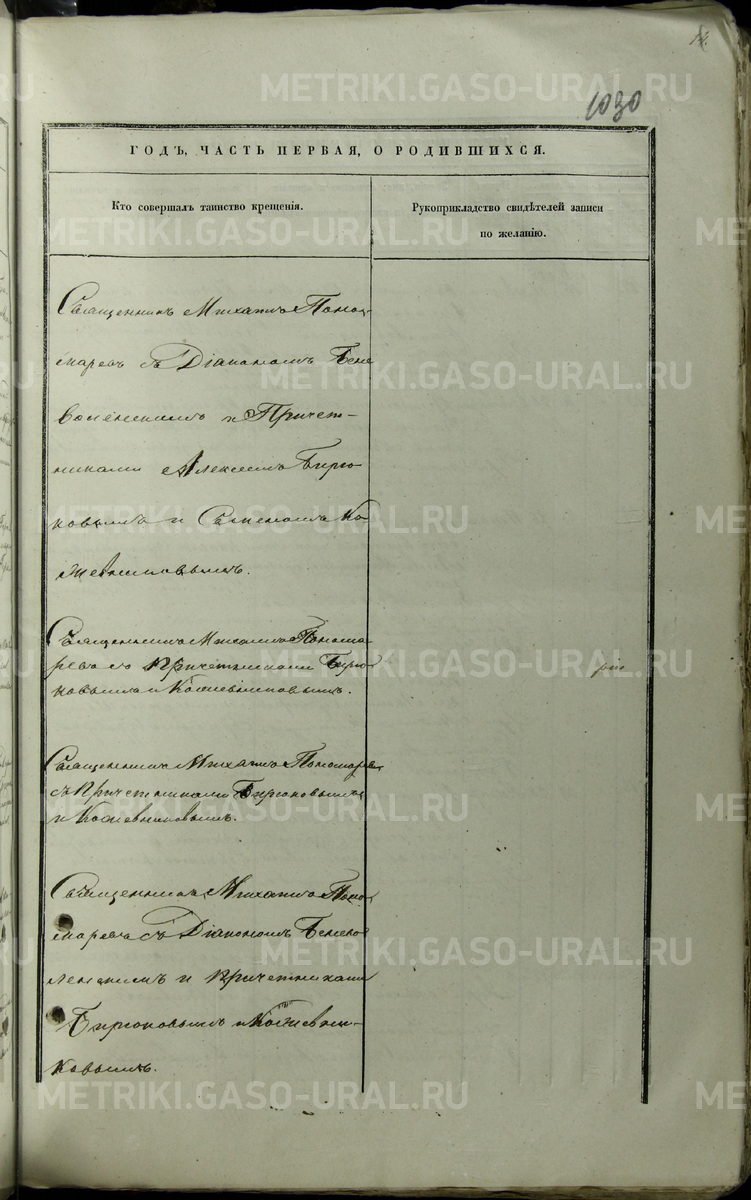 1030
ГОДЪ, ЧАСТЬ ПЕРВАЯ, О РОДИВШИХСЯ.
Кто совершалъ таинство крещенія.
Рукоприкладство свидѣтелей записи
по желанію.
Священникъ Михаилъ Поно-
маревъ съ Діакономъ
и Причет-
никами Алексѣемъ Бирю-
ковымъ и Ко
жевниковымъ.
Священникъ Михаилъ Понома-
ревъ съ Причетниками Бирю-
ковымъ и Кожевниковымъ.
Священникъ Михаилъ Пономаревъ
съ Причетниками Бирюковымъ
и Кожевниковымъ.
Священникъ Михаилъ Поно-
маревъ съ Діакономъ
и Причетниками
Бирюковымъ и Кожевни-
ковымъ.
METRIKI.GASO-URAL.RU